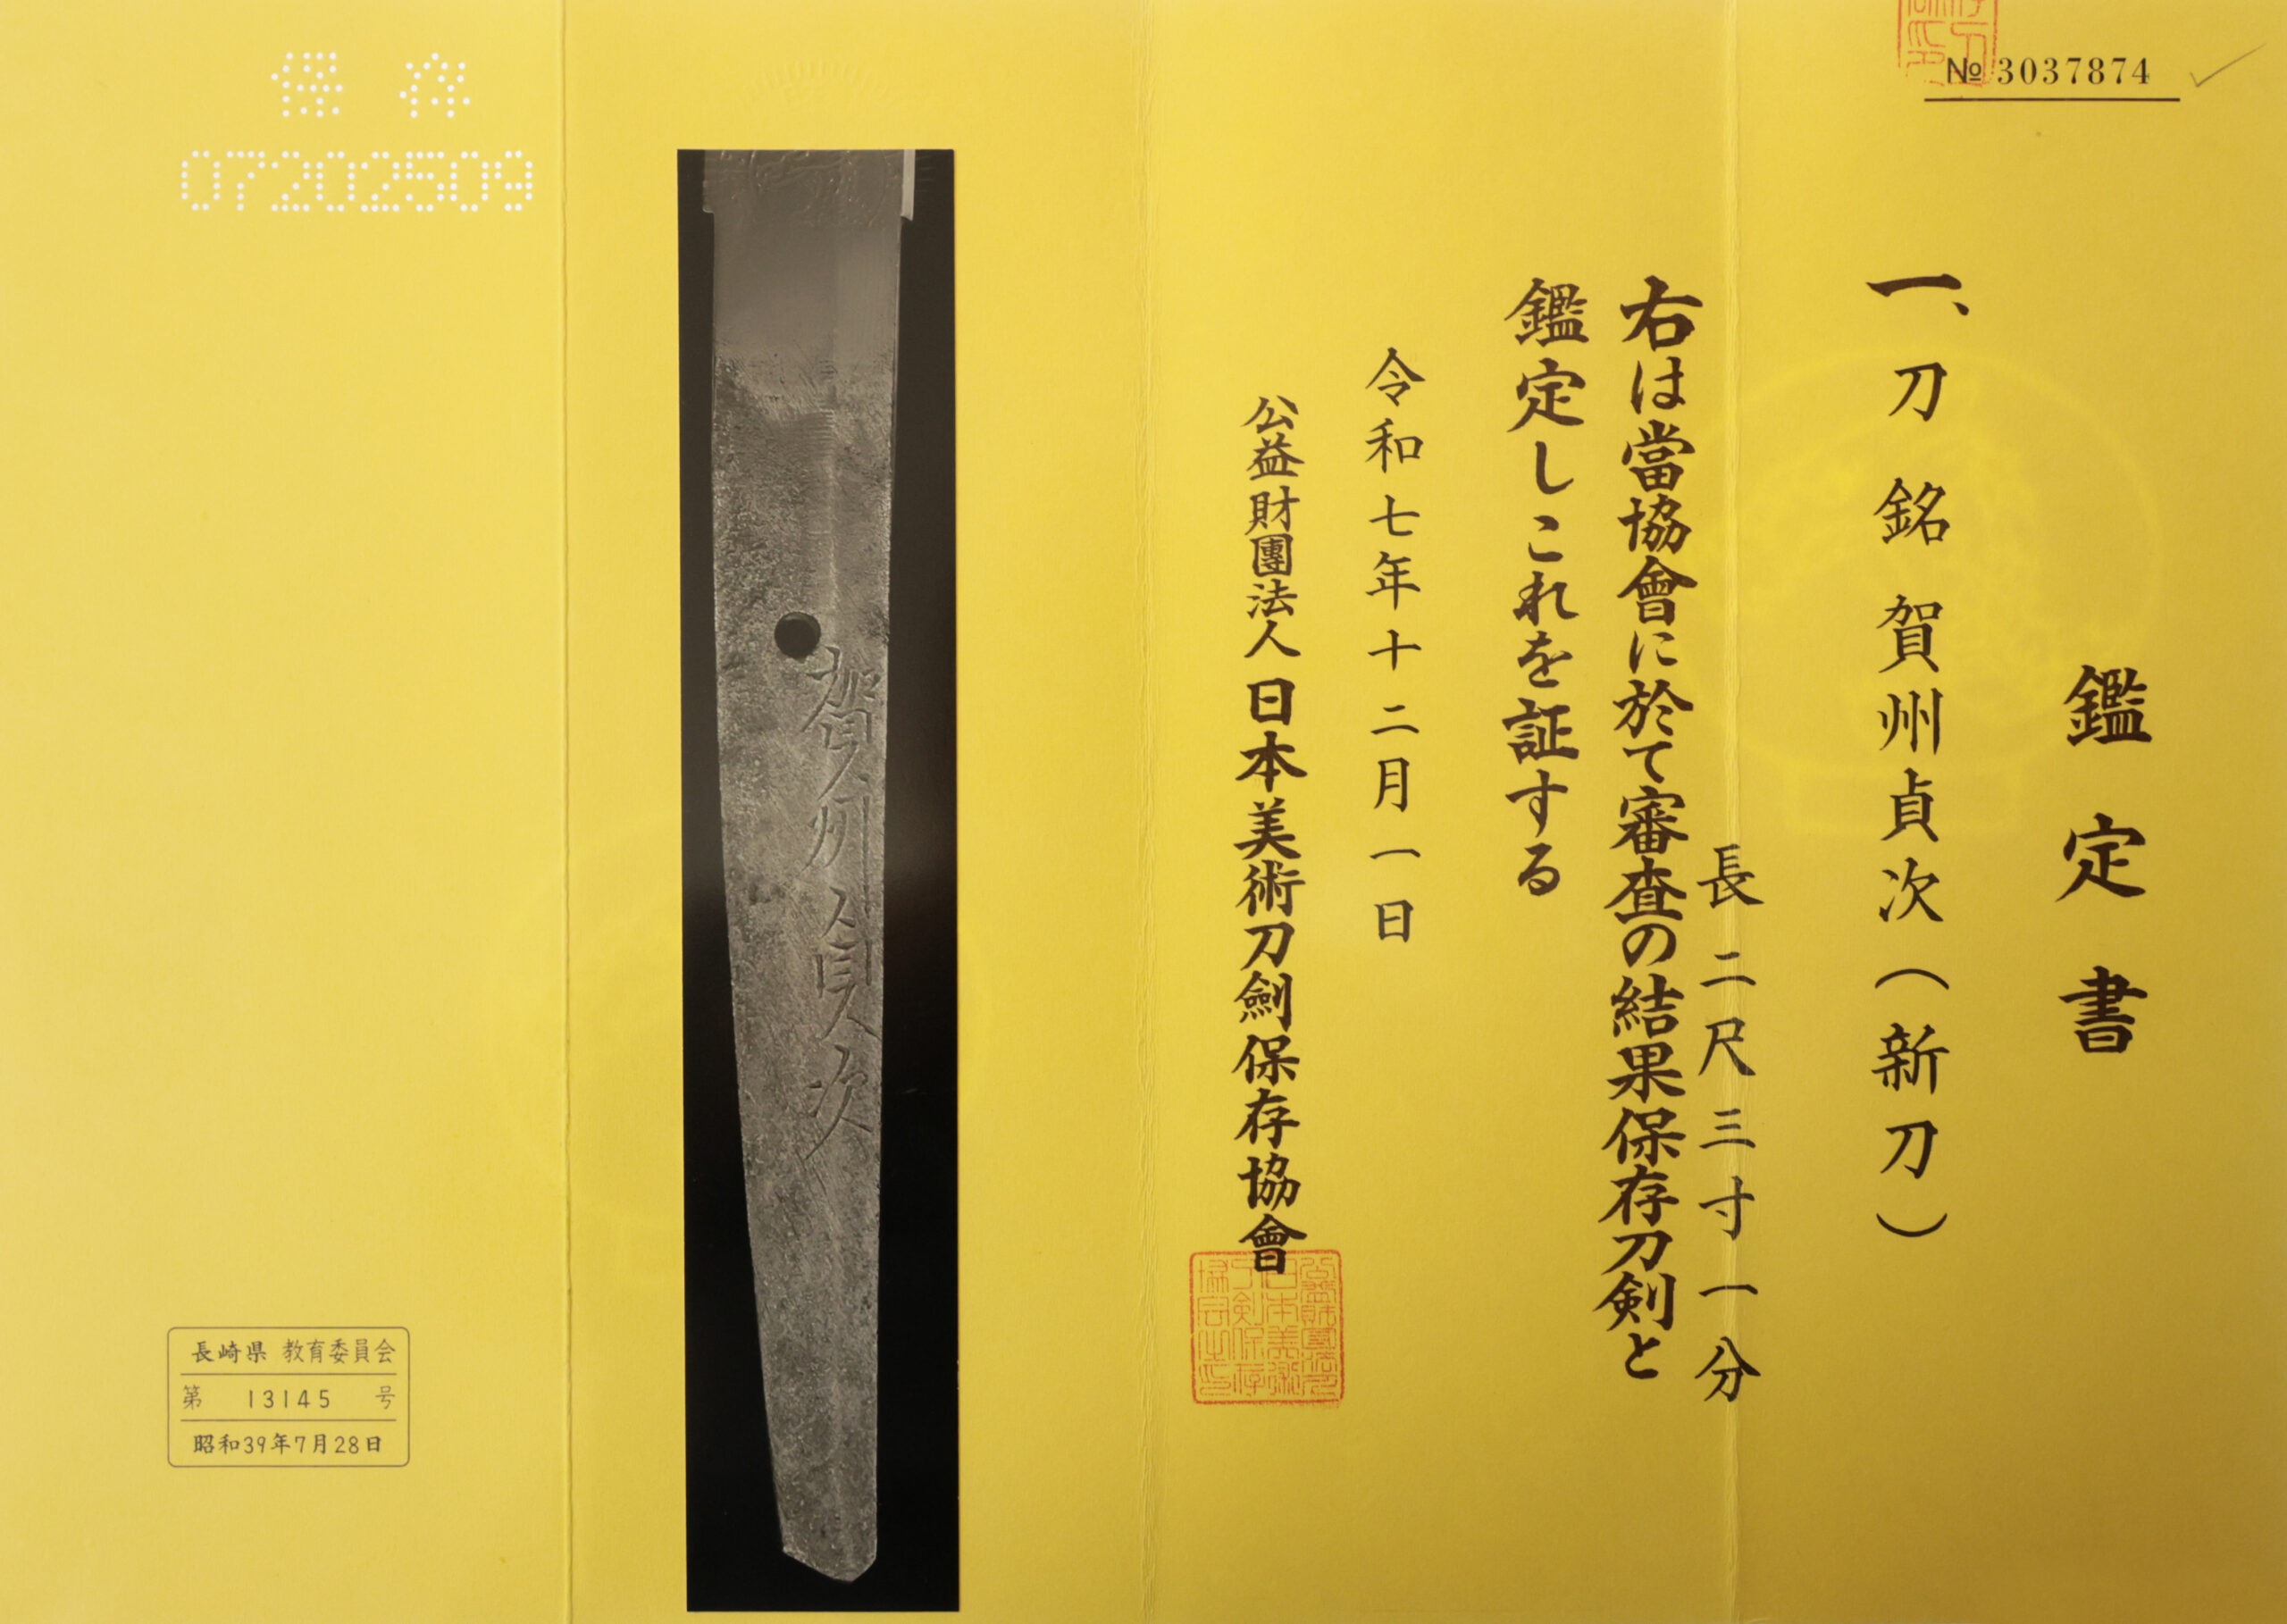 № 3037874
鑑定書
一、刀 銘 賀州貞次(新刀)
長 二尺三寸一分
右は當協會に於て審査の結果保存刀剣と
鑑定しこれを証する
令和七年十二月一日
公益財團法人 日本美術刀劍保存協會
公益財團法人日本美術刀剣保存協会之印
賀州貞次
保存
07202509
長崎県 教育委員会
第 13145 号
昭和39年7月28日